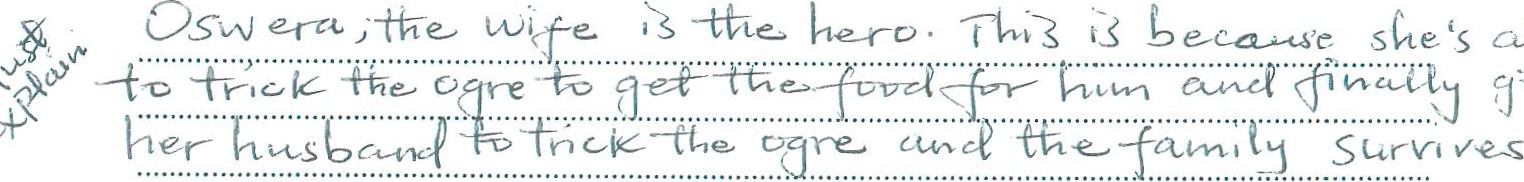 Oswera, the wife is the hero. This is because she's a
to trick the ogre to get the food for him and finally g
her husband to trick the ogre and the family survives
must
explain